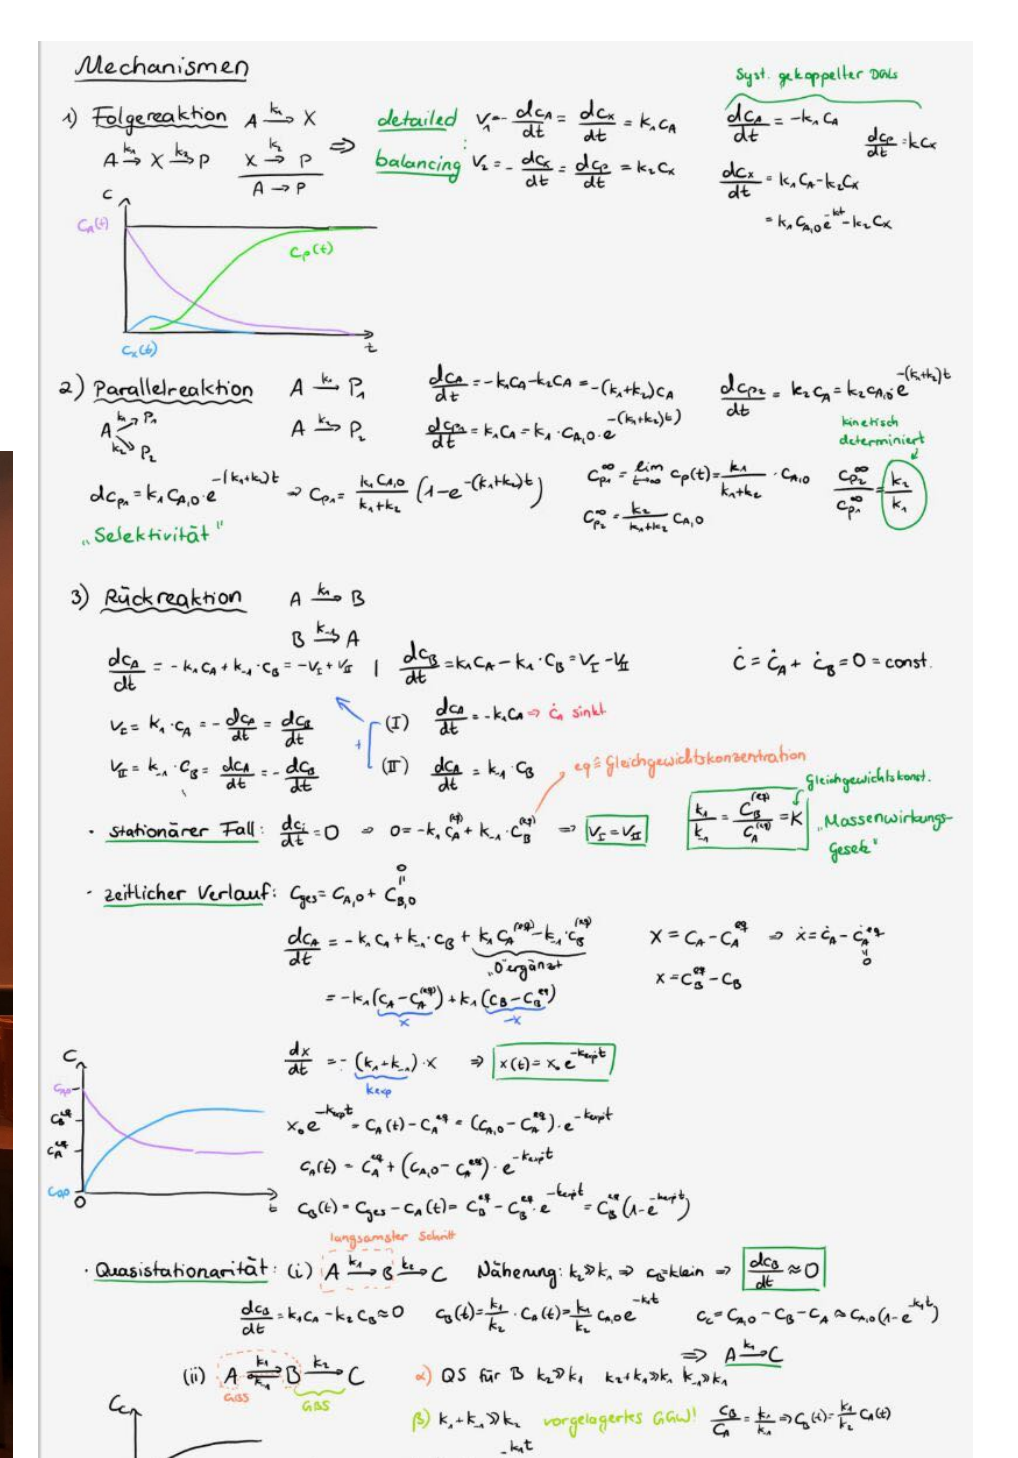 Mechanismen
Syst. gekoppelter DGLs
1) Folgereaktion A —k₁→ X
A —k₁→ X —k₂→ P
X —k₂→ P
A → P
⇒
detailed balancing:
V₁ = - dc_A/dt = dc_X/dt = k₁c_A
V₂ = - dc_X/dt = dc_P/dt = k₂c_X
dc_A/dt = -k₁c_A
dc_P/dt = kc_X
dc_X/dt = k₁c_A - k₂c_X
= k₁c_A,0 e^-kt - k₂c_X
C
C_A(t)
C_P(t)
C_X(t)
t
2) Parallelreaktion A —k₁→ P₁
A —k₁→ P₁
—k₂→ P₂
A —k₂→ P₂
dc_A/dt = -k₁c_A - k₂c_A = -(k₁+k₂)c_A
dc_P1/dt = k₁c_A = k₁ · c_A,0 · e^-(k₁+k₂)t)
dc_P2/dt = k₂c_A = k₂c_A,0 · e^-(k₁+k₂)t
kinetisch determiniert
dc_P1 = k₁c_A,0 · e^-(k₁+k₂)t ⇒ c_P1 = k₁c_A,0/(k₁+k₂) (1-e^-(k₁+k₂)t)
c_P1^∞ = lim t→∞ c_P(t) = k₁/(k₁+k₂) · c_A,0
c_P2^∞ = k₂/(k₁+k₂) c_A,0
c_P2^∞/c_P1^∞ = k₂/k₁
„Selektivität"
3) Rückreaktion A —k₁→ B
B —k₋₁→ A
dc_A/dt = -k₁c_A + k₋₁ · c_B = -V_I + V_II | dc_B/dt = k₁c_A - k₁ · c_B = V_I - V_II
ċ = ċ_A + ċ_B = 0 = const.
V_I = k₁ · c_A = - dc_A/dt = dc_B/dt
+
(I) dc_A/dt = -k₁c_A ⇒ ċ_A sinkt
V_II = k₋₁ · c_B = dc_A/dt = - dc_B/dt
(II) dc_A/dt = k₋₁ · c_B
eq ≙ Gleichgewichtskonzentration
Gleichgewichtskonst.
· stationärer Fall: dc_i/dt = 0 ⇒ 0 = -k₁c_A^(eq) + k₋₁ · c_B^(eq) ⇒ V_I = V_II
k₁/k₋₁ = c_B^(eq)/c_A^(eq) = K
„Massenwirkungs-
Gesetz"
· zeitlicher Verlauf: C_ges = C_A,0 + C_B,0
0
=
dc_A/dt = -k₁c_A + k₋₁ · c_B + k₁c_A^(eq) - k₋₁ · c_B^(eq)
„0"ergänzt
x = c_A - c_A^eq ⇒ ẋ = ċ_A - ċ_A^eq
=
0
x = c_B^eq - c_B
= -k₁(c_A - c_A^(eq)) + k₁(c_B - c_B^eq)
x
-x
dx/dt = -(k₁+k₋₁) · x ⇒ x(t) = x₀ e^-k_exp t
k_exp
x₀ e^-k_exp t = c_A(t) - c_A^eq = (c_A,0 - c_A^eq) · e^-k_exp t
c_A(t) = c_A^eq + (c_A,0 - c_A^eq) · e^-k_exp t
c_B(t) = c_ges - c_A(t) = c_B^eq - c_B^eq · e^-k_exp t = c_B^eq (1-e^-k_exp t)
C
C_B^eq
C_A^eq
0
t
langsamster Schritt
· Quasistationarität: (i) A —k₁→ B —k₂→ C Näherung: k₂ ≫ k₁ ⇒ c_B = klein ⇒ dc_B/dt ≈ 0
dc_B/dt = k₁c_A - k₂c_B ≈ 0
c_B(t) = k₁/k₂ · c_A(t) = k₁/k₂ c_A,0 e^-k₁t
c_C = c_A,0 - c_B - c_A ≈ c_A,0 (1-e^-k₁t)
⇒ A —k₁→ C
(ii) A ⇌ B —k₂→ C
k₁
k₋₁
GBS
α) QS für B k₂ ≫ k₁ k₂+k₁ ≫ k₁ k₋₁ ≫ k₁
β) k₁+k₋₁ ≫ k₂ vorgelagertes GGW! c_B/c_A = k₁/k₁ ⇒ c_B(t) = k₁/k₂ c_A(t)
-k₁t